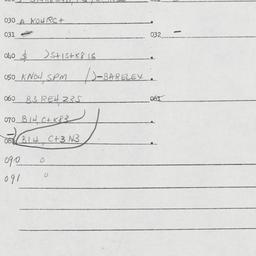 030 A KOHRS+
031 - 032 -
040 $ )S+1S+K816
050 KNOW, SPM / )-BARELEY
060 B3RE4,235 065
070 B14, C+K83
080 B14, C+3N3
090 0
091 0